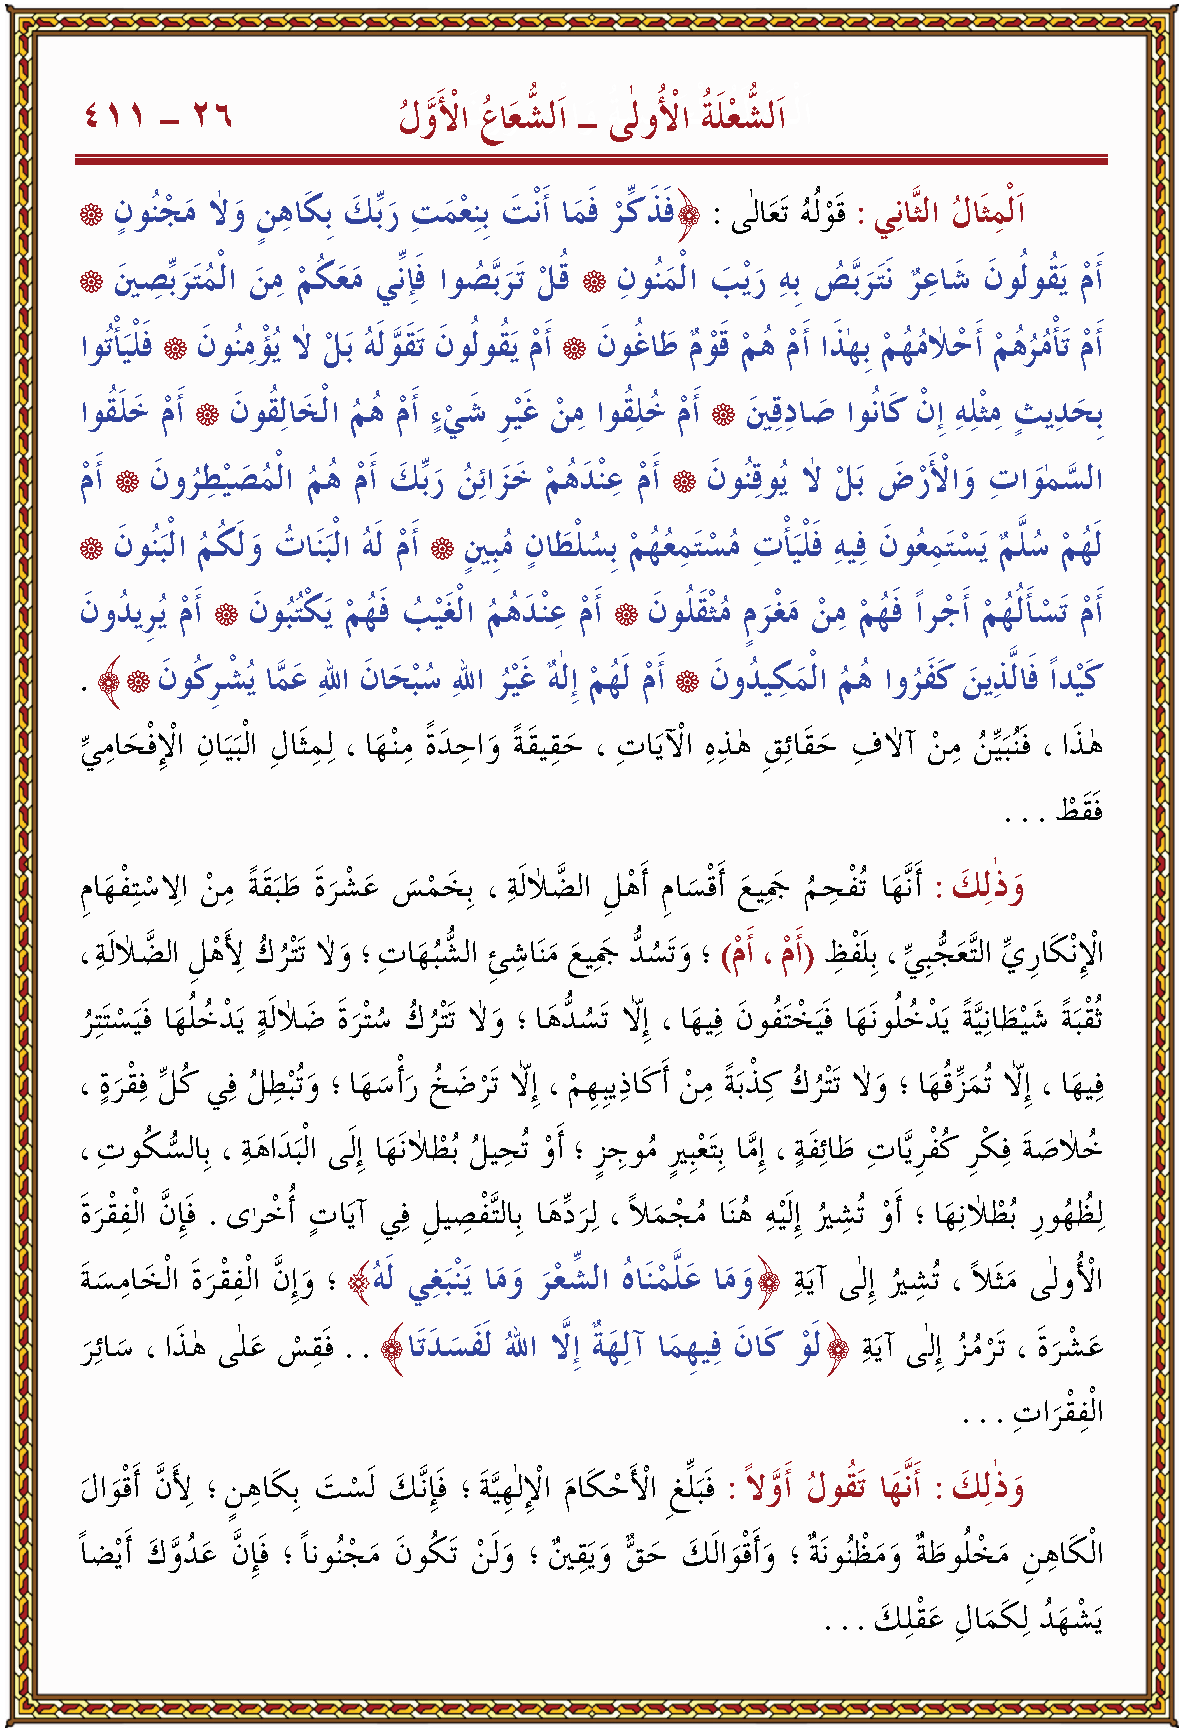 اَلشُّعْلَةُ الْأُولٰى ـ اَلشُّعَاعُ الْأَوَّلُ ٢٦ ـ ٤١١
اَلْمِثَالُ الثَّانِي : قَوْلُهُ تَعَالٰى : ﴿فَذَكِّرْ فَمَا أَنْتَ بِنِعْمَتِ رَبِّكَ بِكَاهِنٍ وَلَا مَجْنُونٍ ۞
أَمْ يَقُولُونَ شَاعِرٌ نَتَرَبَّصُ بِهِ رَيْبَ الْمَنُونِ ۞ قُلْ تَرَبَّصُوا فَإِنِّي مَعَكُمْ مِنَ الْمُتَرَبِّصِينَ ۞
أَمْ تَأْمُرُهُمْ أَحْلَامُهُمْ بِهٰذَا أَمْ هُمْ قَوْمٌ طَاغُونَ ۞ أَمْ يَقُولُونَ تَقَوَّلَهُ بَلْ لَا يُؤْمِنُونَ ۞ فَلْيَأْتُوا
بِحَدِيثٍ مِثْلِهِ إِنْ كَانُوا صَادِقِينَ ۞ أَمْ خُلِقُوا مِنْ غَيْرِ شَيْءٍ أَمْ هُمُ الْخَالِقُونَ ۞ أَمْ خَلَقُوا
السَّمٰوَاتِ وَالْأَرْضَ بَلْ لَا يُوقِنُونَ ۞ أَمْ عِنْدَهُمْ خَزَائِنُ رَبِّكَ أَمْ هُمُ الْمُصَيْطِرُونَ ۞ أَمْ
لَهُمْ سُلَّمٌ يَسْتَمِعُونَ فِيهِ فَلْيَأْتِ مُسْتَمِعُهُمْ بِسُلْطَانٍ مُبِينٍ ۞ أَمْ لَهُ الْبَنَاتُ وَلَكُمُ الْبَنُونَ ۞
أَمْ تَسْأَلُهُمْ أَجْراً فَهُمْ مِنْ مَغْرَمٍ مُثْقَلُونَ ۞ أَمْ عِنْدَهُمُ الْغَيْبُ فَهُمْ يَكْتُبُونَ ۞ أَمْ يُرِيدُونَ
كَيْداً فَالَّذِينَ كَفَرُوا هُمُ الْمَكِيدُونَ ۞ أَمْ لَهُمْ إِلٰهٌ غَيْرُ اللهِ سُبْحَانَ اللهِ عَمَّا يُشْرِكُونَ ۞﴾ .
هٰذَا ، فَنُبَيِّنُ مِنْ آلَافِ حَقَائِقِ هٰذِهِ الْآيَاتِ ، حَقِيقَةً وَاحِدَةً مِنْهَا ، لِمِثَالِ الْبَيَانِ الْإِفْحَامِيِّ
فَقَطْ . . .
وَذٰلِكَ : أَنَّهَا تُفْحِمُ جَمِيعَ أَقْسَامِ أَهْلِ الضَّلَالَةِ ، بِخَمْسَ عَشْرَةَ طَبَقَةً مِنْ اَلِاسْتِفْهَامِ
الْإِنْكَارِيِّ التَّعَجُّبِيِّ ، بِلَفْظِ (أَمْ ، أَمْ) ؛ وَتَسُدُّ جَمِيعَ مَنَاشِئِ الشُّبُهَاتِ ؛ وَلَا تَتْرُكُ لِأَهْلِ الضَّلَالَةِ ،
ثُقْبَةً شَيْطَانِيَّةً يَدْخُلُونَهَا فَيَخْتَفُونَ فِيهَا ، إِلَّا تَسُدُّهَا ؛ وَلَا تَتْرُكُ سُتْرَةَ ضَلَالَةٍ يَدْخُلُهَا فَيَسْتَتِرُ
فِيهَا ، إِلَّا تُمَزِّقُهَا ؛ وَلَا تَتْرُكُ كِذْبَةً مِنْ أَكَاذِيبِهِمْ ، إِلَّا تَرْضَخُ رَأْسَهَا ؛ وَتُبْطِلُ فِي كُلِّ فِقْرَةٍ ،
خُلَاصَةَ فِكْرِ كُفْرِيَّاتِ طَائِفَةٍ ، إِمَّا بِتَعْبِيرٍ مُوجِزٍ ؛ أَوْ تُحِيلُ بُطْلَانَهَا إِلَى الْبَدَاهَةِ ، بِالسُّكُوتِ ،
لِظُهُورِ بُطْلَانِهَا ؛ أَوْ تُشِيرُ إِلَيْهِ هُنَا مُجْمَلاً ، لِرَدِّهَا بِالتَّفْصِيلِ فِي آيَاتٍ أُخْرٰى . فَإِنَّ الْفِقْرَةَ
الْأُولٰى مَثَلاً ، تُشِيرُ إِلٰى آيَةِ ﴿وَمَا عَلَّمْنَاهُ الشِّعْرَ وَمَا يَنْبَغِي لَهُ﴾ ؛ وَإِنَّ الْفِقْرَةَ الْخَامِسَةَ
عَشْرَةَ ، تَرْمُزُ إِلٰى آيَةِ ﴿لَوْ كَانَ فِيهِمَا آلِهَةٌ إِلَّا اللهُ لَفَسَدَتَا﴾ . . فَقِسْ عَلٰى هٰذَا ، سَائِرَ
الْفِقْرَاتِ . . .
وَذٰلِكَ : أَنَّهَا تَقُولُ أَوَّلاً : فَبَلِّغِ الْأَحْكَامَ الْإِلٰهِيَّةَ ؛ فَإِنَّكَ لَسْتَ بِكَاهِنٍ ؛ لِأَنَّ أَقْوَالَ
الْكَاهِنِ مَخْلُوطَةٌ وَمَظْنُونَةٌ ؛ وَأَقْوَالَكَ حَقٌّ وَيَقِينٌ ؛ وَلَنْ تَكُونَ مَجْنُوناً ؛ فَإِنَّ عَدُوَّكَ أَيْضاً
يَشْهَدُ لِكَمَالِ عَقْلِكَ . . .